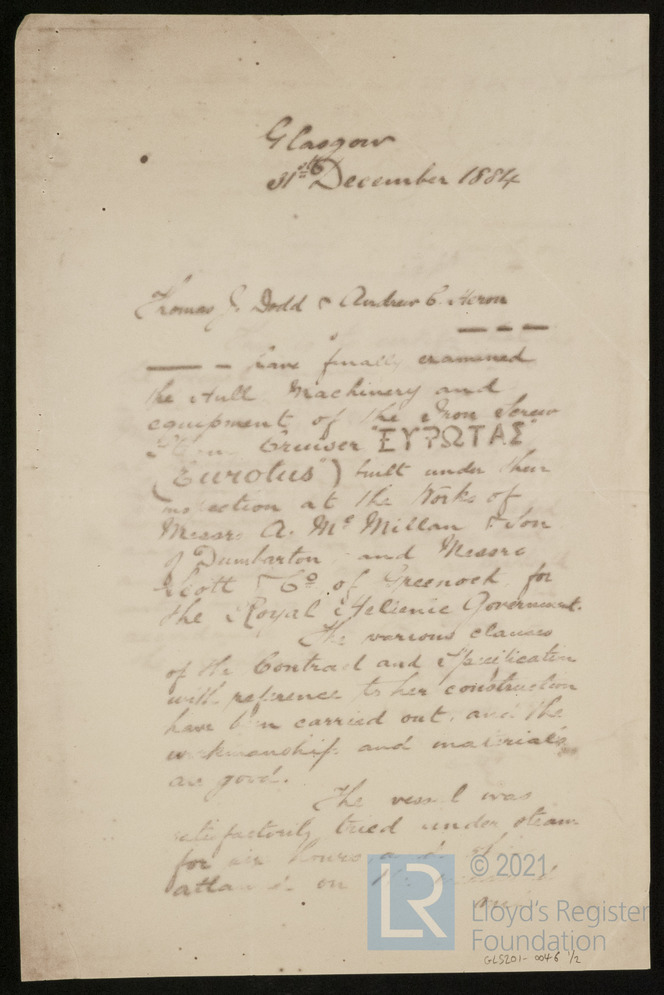 Glasgow
31st December 1884
Thomas J. Dodd & Andrew C. Heron
— — —
— – have finally examined
the Hull Machinery and
equipment of the Iron Screw
Cruiser "ΕΥΡΩΤΑΣ"
("Eurotus") built under their
inspection at the Works of
Messrs A. McMillan & Son
of Dumbarton, and Messrs
Scott & Co of Greenock, for
the Royal Helienic Government.
The various clauses
of the Contract and Specification
with reference to her construction
have been carried out, and the
workmanship and materials
are good.
The vessel was
satisfactorily tried under steam
for six hours
on
© 2021
LR
Lloyd's Register
Foundation
GLS201-0046 1/2